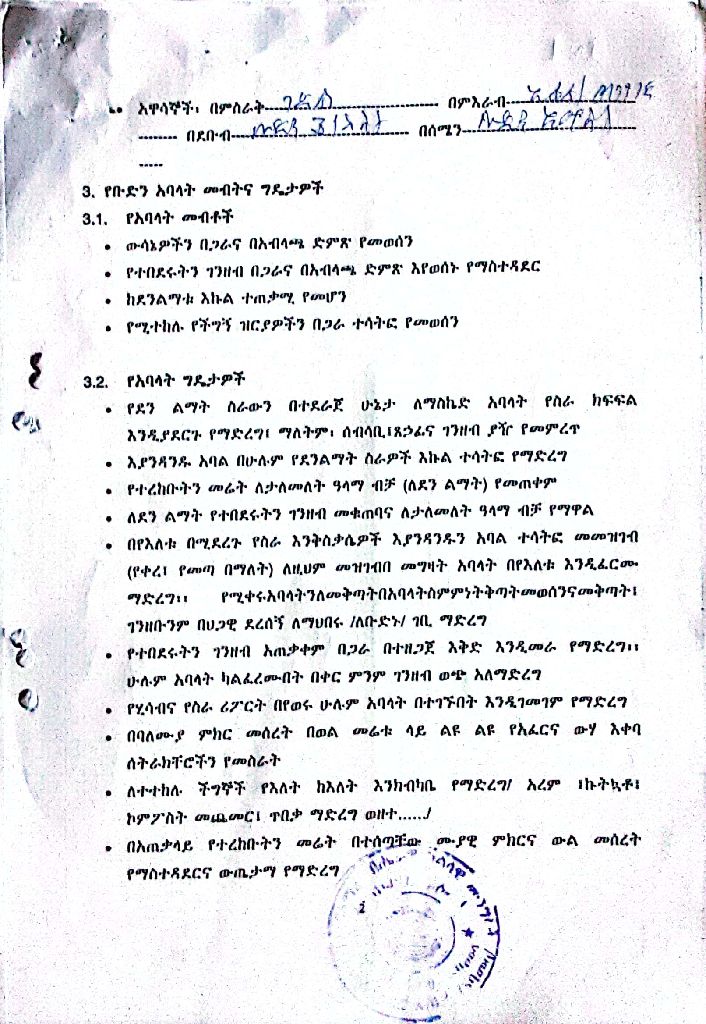 አዋሳኞች፡ በምስራቅ ገደል በምእራብ
በደቡብ በሰሜን
3. የቡድን አባላት መብትና ግዴታዎች
3.1. የአባላት መብቶች
• ውሳኔዎችን በጋራና በአብላጫ ድምጽ የመወሰን
• የተበደሩትን ገንዘብ በጋራና በአብላጫ ድምጽ እየወሰኑ የማስተዳደር
• ከደንልማቱ እኩል ተጠቃሚ የመሆን
• የሚተከሉ የችግኝ ዝርያዎችን በጋራ ተሳትፎ የመወሰን
3.2. የአባላት ግዴታዎች
• የደን ልማት ስራውን በተደራጀ ሁኔታ ለማስኬድ አባላት የስራ ክፍፍል
እንዲያደርጉ የማድረግ፤ ማለትም፡ ሰብሳቢ፤ጸኃፊና ገንዘብ ያዥ የመምረጥ
• እያንዳንዱ አባል በሁሉም የደንልማት ስራዎች እኩል ተሳትፎ የማድረግ
• የተረከቡትን መሬት ለታለመለት ዓላማ ብቻ (ለደን ልማት) የመጠቀም
• ለደን ልማት የተበደሩትን ገንዘብ መቁጠባና ለታለመለት ዓላማ ብቻ የማዋል
• በየእለቱ በሚደረጉ የስራ እንቅስቃሴዎች እያንዳንዱን አባል ተሳትፎ መመዝገብ
(የቀረ፤ የመጣ በማለት) ለዚህም መዝገብበ መግዛት አባላት በየእለቱ እንዲፈርሙ
ማድረግ፡፡ የሚቀሩአባላትንለመቅጣትበአባላትስምምነትቅጣትመወሰንናመቅጣት፤
ገንዘቡንም በህጋዊ ደረሰኝ ለማህበሩ /ለቡድኑ/ ገቢ ማድረግ
• የተበደሩትን ገንዘብ አጠቃቀም በጋራ በተዘጋጀ እቅድ እንዲመራ የማድረግ፡፡
ሁሉም አባላት ካልፈረሙበት በቀር ምንም ገንዘብ ወጭ አለማድረግ
• የሂሳብና የስራ ሪፖርት በየወሩ ሁሉም አባላት በተገኙበት እንዲገመገም የማድረግ
• በባለሙያ ምክር መሰረት በወል መሬቱ ላይ ልዩ ልዩ የአፈርና ውሃ እቀባ
ስትራክቸሮችን የመስራት
• ለተተከሉ ችግኞች የእለት ከእለት እንክብካቤ የማድረግ/ አረም ፤ኩትኳቶ፤
ኮምፖስት መጨመር፤ ጥበቃ ማድረግ ወዘተ....../
• በአጠቃላይ የተረከቡትን መሬት በተሰጣቸው ሙያዊ ምክርና ውል መሰረት
የማስተዳደርና ውጤታማ የማድረግ